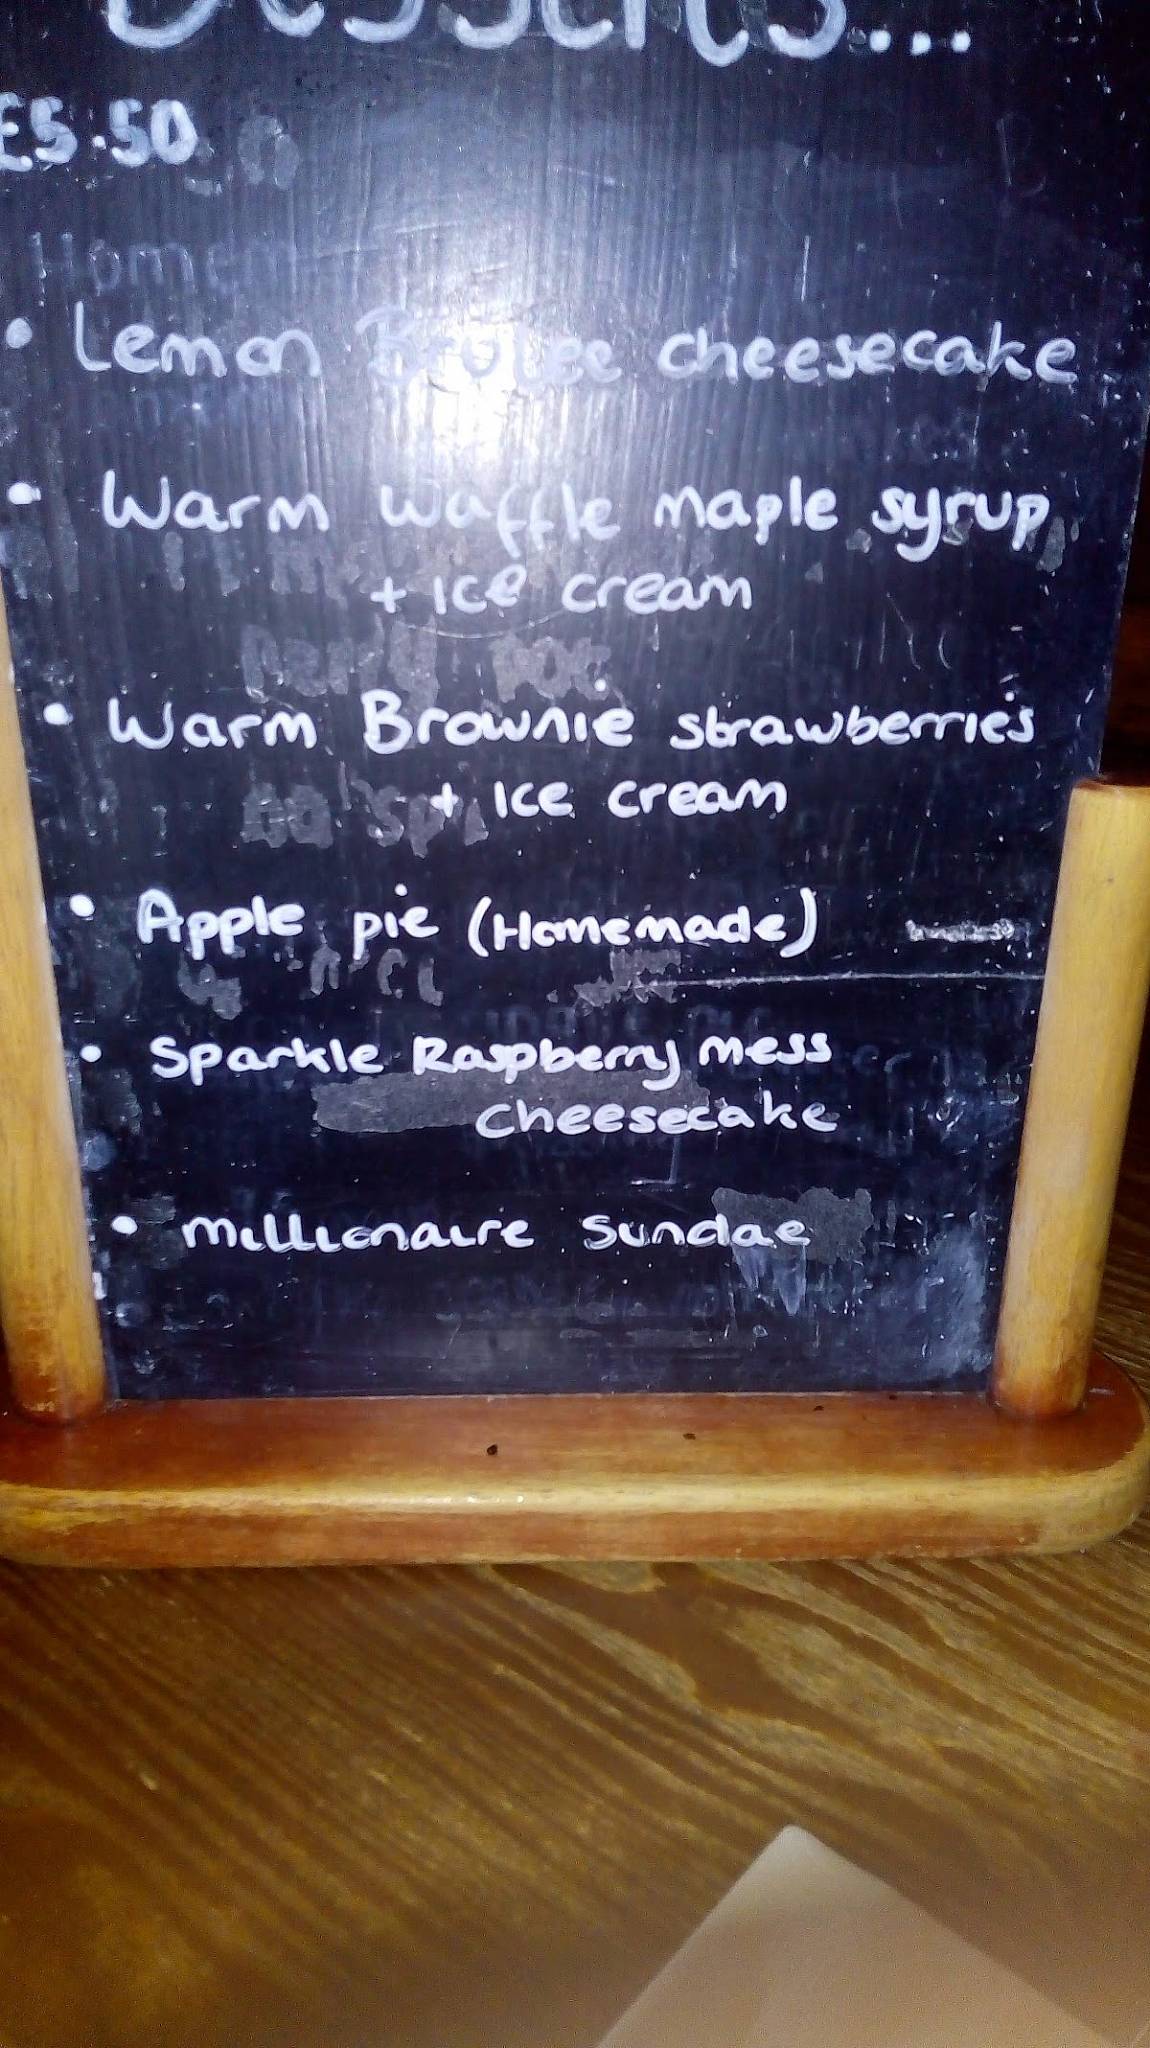 Desserts...
£5.50
• Lemon Brulee cheesecake
• Warm waffle maple syrup
+ ice cream
• Warm Brownie strawberries
+ ice cream
• Apple pie (Homemade)
• Sparkle Raspberry mess
cheesecake
• millionaire sundae